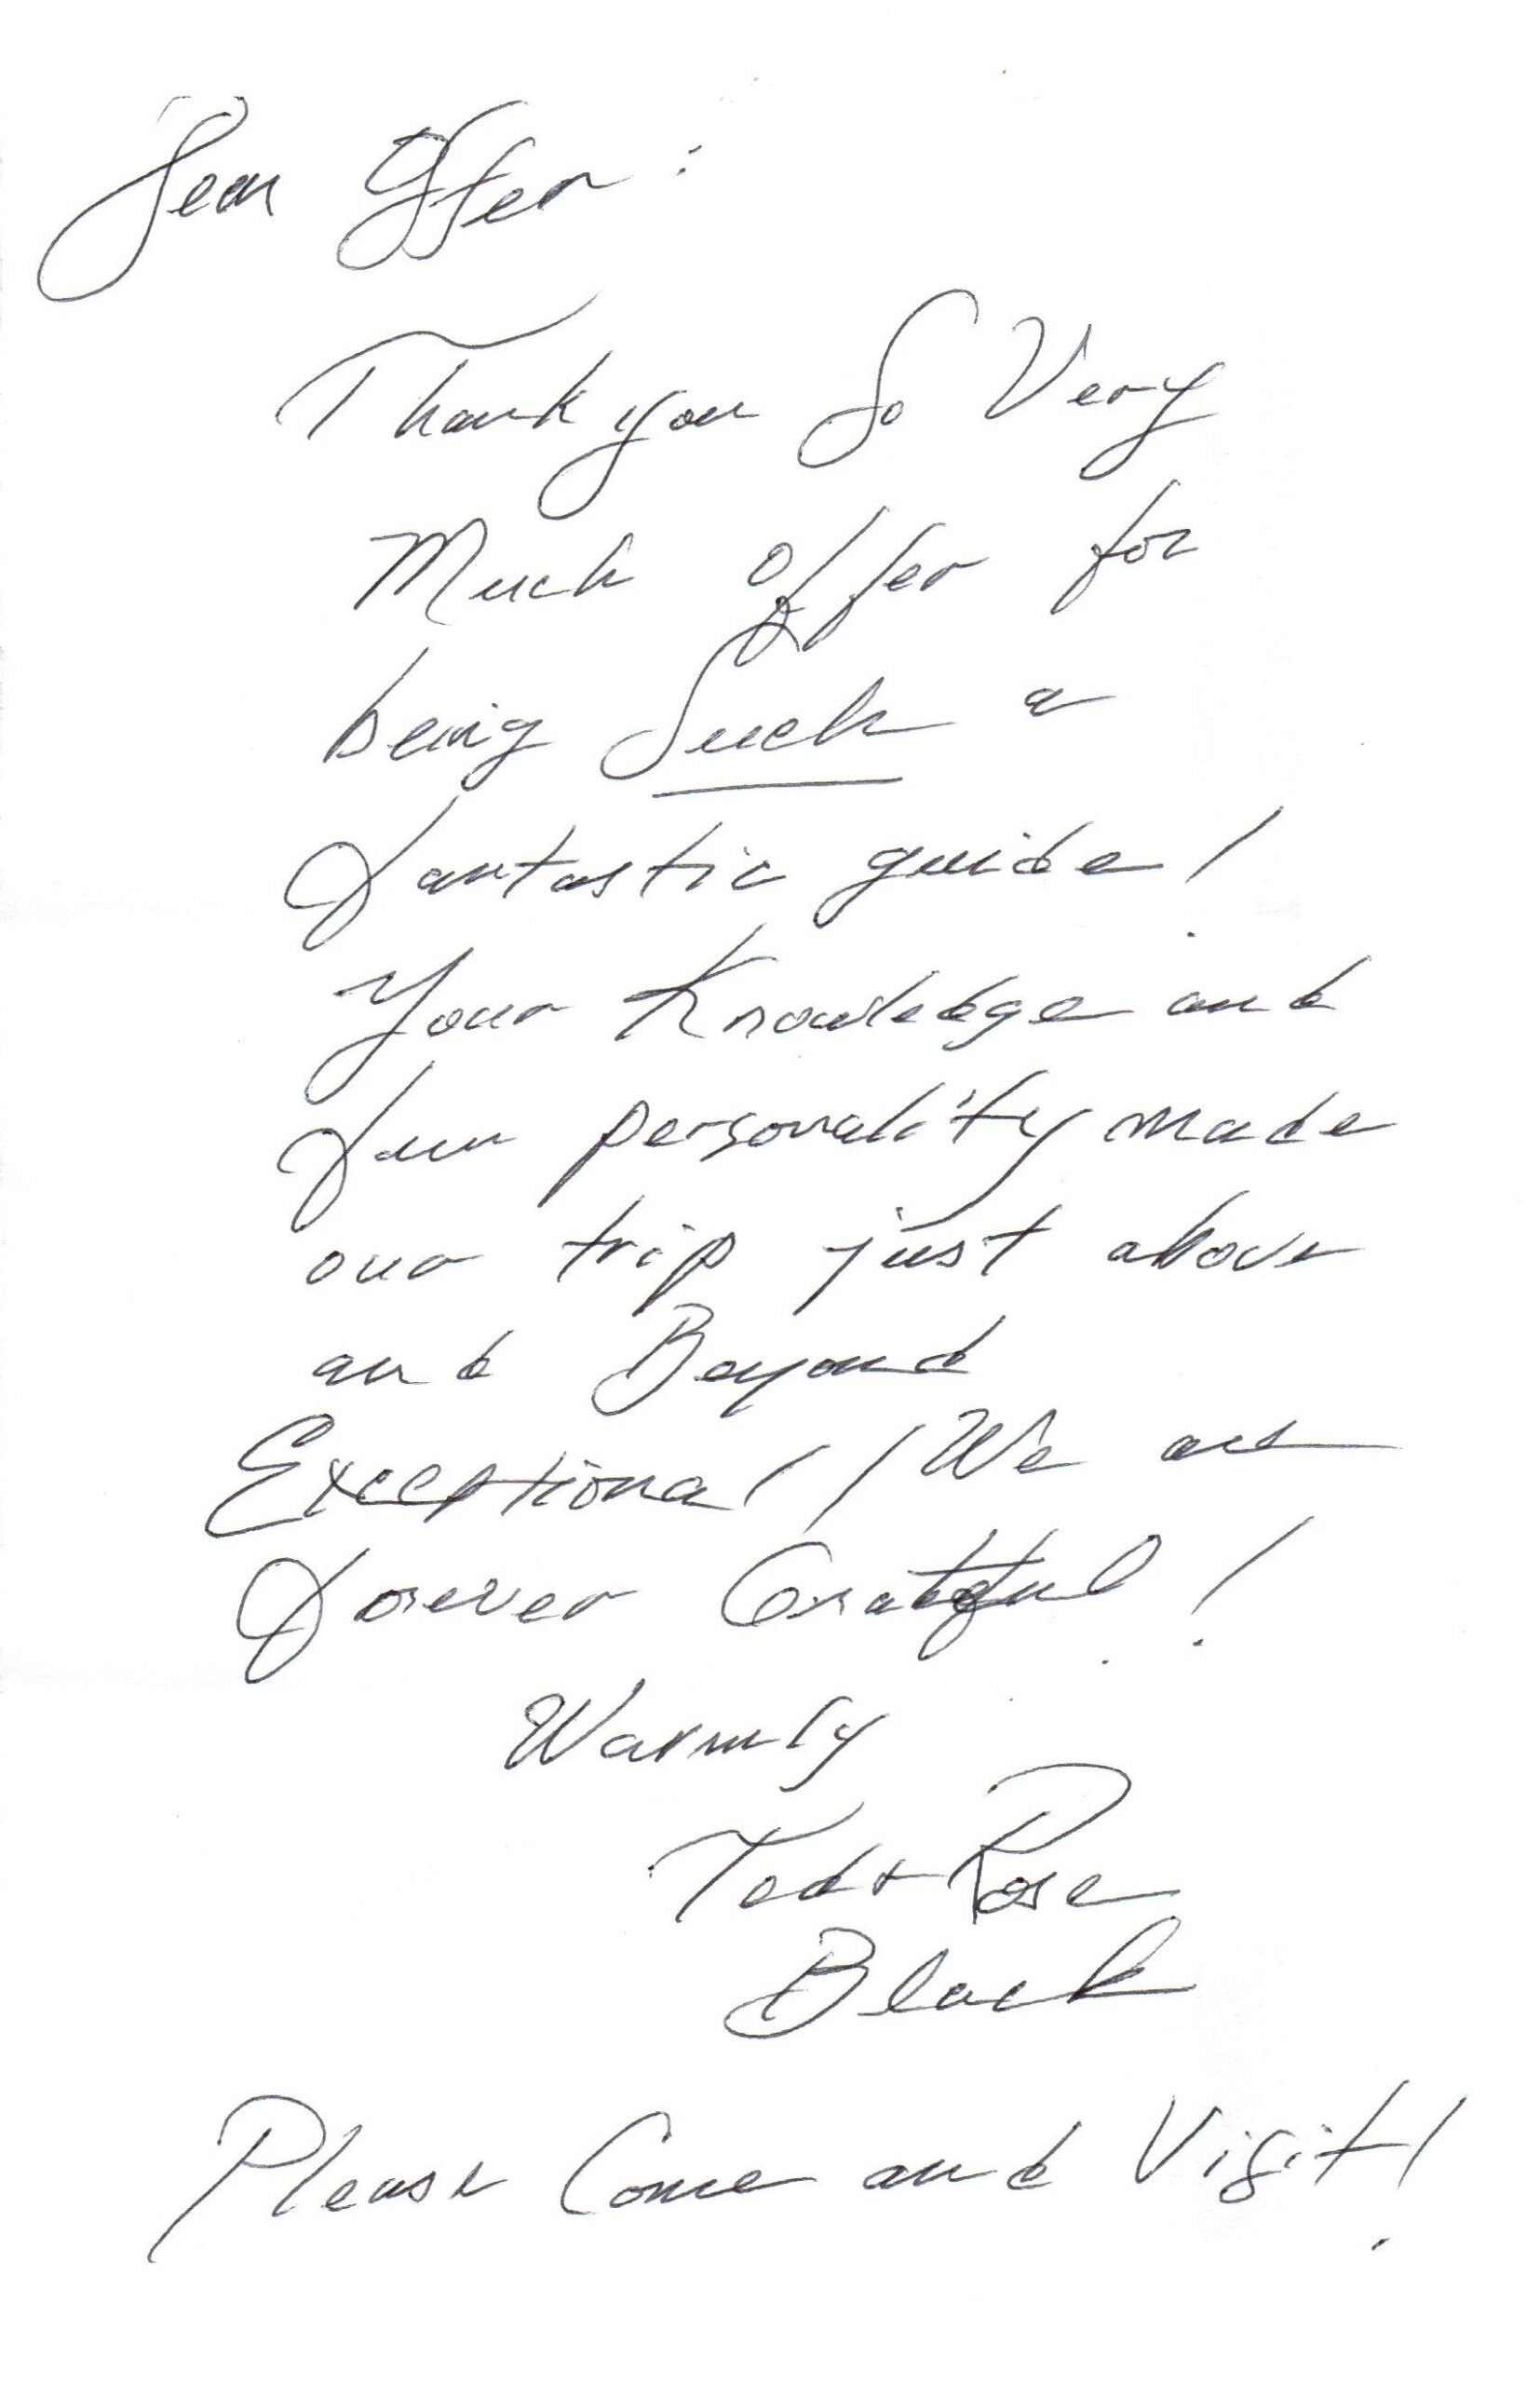 Dear Offer:
Thank you So Very
Much Offer for
being Such a
fantastic guide!
Your Knowledge and
fun personality made
our trip just above
and Beyond
Exceptional! We are
forever Grateful!
Warmly
Ted + Rose
Black
Please Come and Visit!